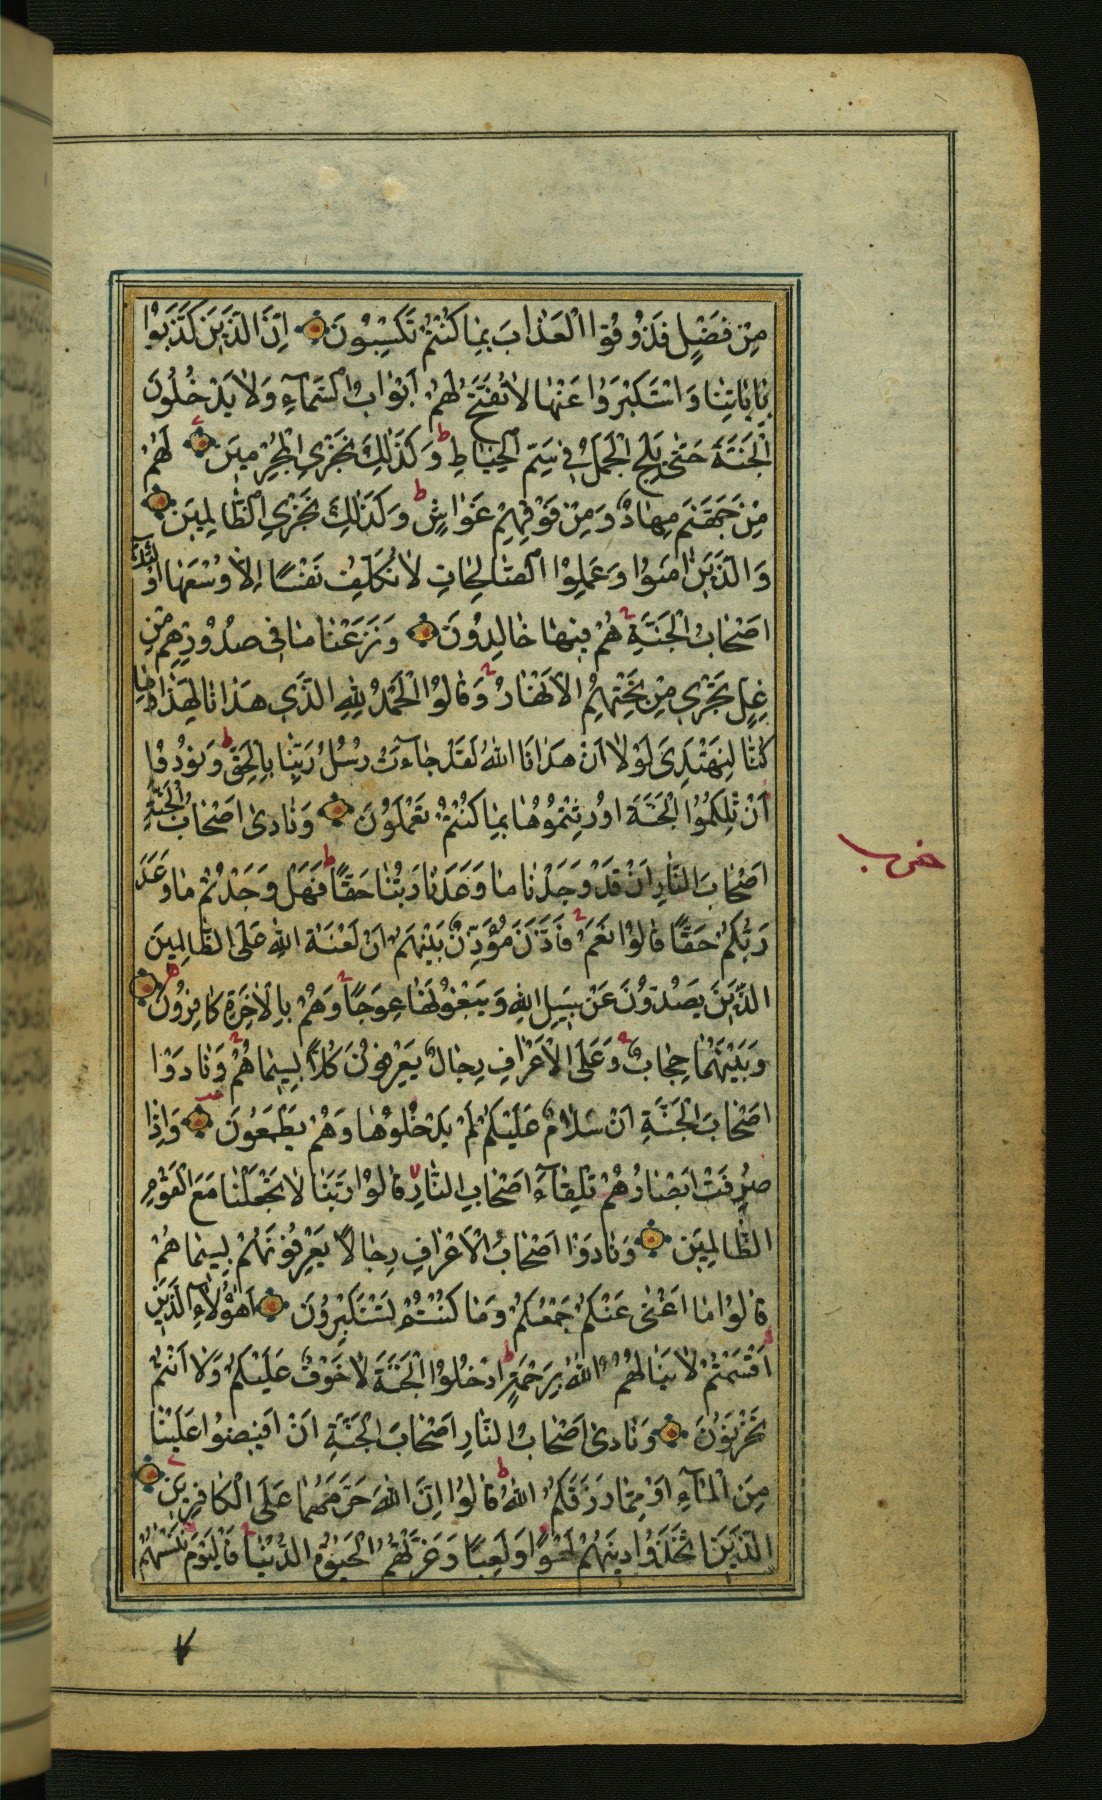 مِنْ فَضْلٍ فَذُوقُوا الْعَذَابَ بِمَا كُنْتُمْ تَكْسِبُونَ اِنَّ الَّذِينَ كَذَّبُوا
بِاٰيَاتِنَا وَاسْتَكْبَرُوا عَنْهَا لَا تُفَتَّحُ لَهُمْ اَبْوَابُ السَّمَآءِ وَلَا يَدْخُلُونَ
الْجَنَّةَ حَتّٰى يَلِجَ الْجَمَلُ فِي سَمِّ الْخِيَاطِ ط وَكَذٰلِكَ نَجْزِي الْمُجْرِمِينَ لَهُمْ
مِنْ جَهَنَّمَ مِهَادٌ وَمِنْ فَوْقِهِمْ غَوَاشٍ ط وَكَذٰلِكَ نَجْزِي الظَّالِمِينَ
وَالَّذِينَ اٰمَنُوا وَعَمِلُوا الصَّالِحَاتِ لَا نُكَلِّفُ نَفْسًا اِلَّا وُسْعَهَا اُولٰٓئِكَ
اَصْحَابُ الْجَنَّةِ هُمْ فِيهَا خَالِدُونَ وَنَزَعْنَا مَا فِي صُدُورِهِمْ مِنْ
غِلٍّ تَجْرِي مِنْ تَحْتِهِمُ الْاَنْهَارُ وَقَالُوا الْحَمْدُ لِلّٰهِ الَّذِي هَدَانَا لِهٰذَا وَمَا
كُنَّا لِنَهْتَدِيَ لَوْلَا اَنْ هَدَانَا اللّٰهُ لَقَدْ جَآءَتْ رُسُلُ رَبِّنَا بِالْحَقِّ ط وَنُودُوا
اَنْ تِلْكُمُ الْجَنَّةَ اُورِثْتُمُوهَا بِمَا كُنْتُمْ تَعْمَلُونَ وَنَادٰى اَصْحَابُ الْجَنَّةِ
اَصْحَابَ النَّارِ اَنْ قَدْ وَجَدْنَا مَا وَعَدَنَا رَبُّنَا حَقًّا ط فَهَلْ وَجَدْتُمْ مَا وَعَدَ
رَبُّكُمْ حَقًّا قَالُوا نَعَمْ فَاَذَّنَ مُؤَذِّنٌ بَيْنَهُمْ اَنْ لَعْنَةُ اللّٰهِ عَلَى الظَّالِمِينَ
الَّذِينَ يَصُدُّونَ عَنْ سَبِيلِ اللّٰهِ وَيَبْغُونَهَا عِوَجًا وَهُمْ بِالْاٰخِرَةِ كَافِرُونَ
وَبَيْنَهُمَا حِجَابٌ وَعَلَى الْاَعْرَافِ رِجَالٌ يَعْرِفُونَ كُلًّا بِسِيمَاهُمْ وَنَادَوْا
اَصْحَابَ الْجَنَّةِ اَنْ سَلَامٌ عَلَيْكُمْ لَمْ يَدْخُلُوهَا وَهُمْ يَطْمَعُونَ وَاِذَا
صُرِفَتْ اَبْصَارُهُمْ تِلْقَآءَ اَصْحَابِ النَّارِ قَالُوا رَبَّنَا لَا تَجْعَلْنَا مَعَ الْقَوْمِ
الظَّالِمِينَ وَنَادَوْا اَصْحَابُ الْاَعْرَافِ رِجَالًا يَعْرِفُونَهُمْ بِسِيمَاهُمْ
قَالُوا مَا اَغْنٰى عَنْكُمْ جَمْعُكُمْ وَمَا كُنْتُمْ تَسْتَكْبِرُونَ اَهٰٓؤُلَآءِ الَّذِينَ
اَقْسَمْتُمْ لَا يَنَالُهُمُ اللّٰهُ بِرَحْمَةٍ ط ادْخُلُوا الْجَنَّةَ لَا خَوْفٌ عَلَيْكُمْ وَلَا اَنْتُمْ
تَحْزَنُونَ وَنَادٰى اَصْحَابُ النَّارِ اَصْحَابَ الْجَنَّةِ اَنْ اَفِيضُوا عَلَيْنَا
مِنَ الْمَآءِ اَوْ مِمَّا رَزَقَكُمُ اللّٰهُ ط قَالُوا اِنَّ اللّٰهَ حَرَّمَهُمَا عَلَى الْكَافِرِينَ
الَّذِينَ اتَّخَذُوا دِينَهُمْ لَهْوًا وَلَعِبًا وَغَرَّتْهُمُ الْحَيٰوةُ الدُّنْيَا فَالْيَوْمَ نَنْسٰهُمْ